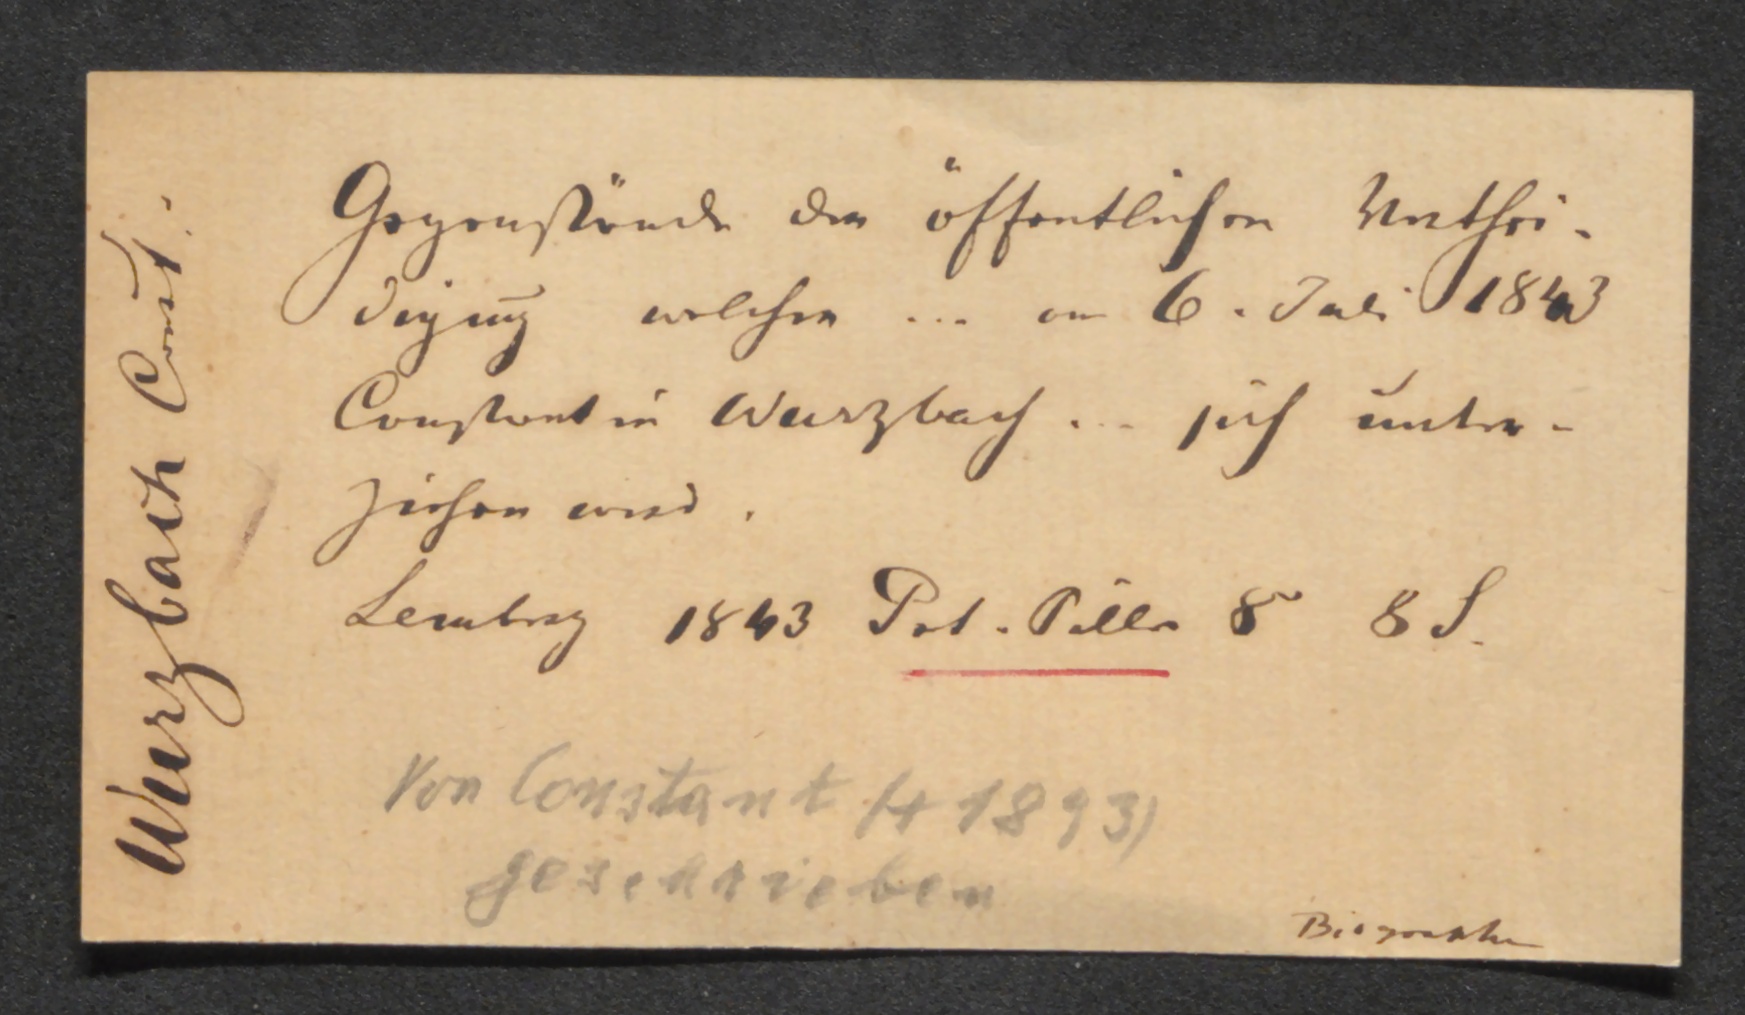 Wurzbach Const.
Gegenstände der öffentlichen Verthei-
digung welcher ... am 6. Juli 1843
Constantin Wurzbach ... sich unter-
ziehen wird.
Lemberg 1843 Pet. Piller 8° 8 S.
Von Constant († 1893)
geschrieben